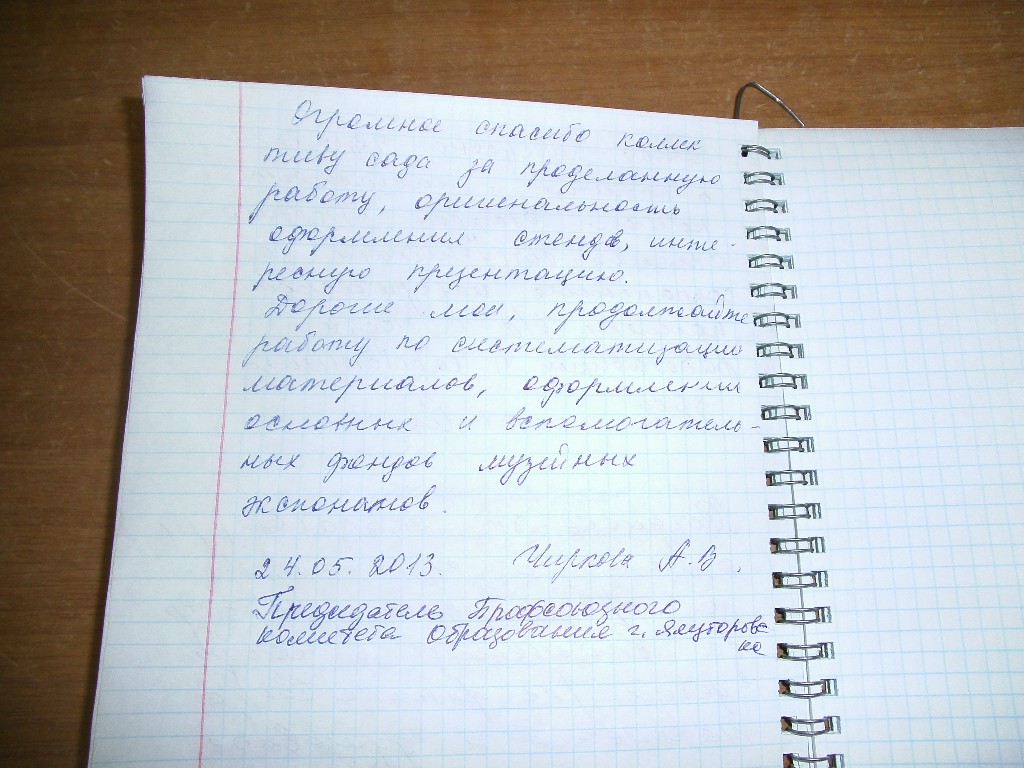 Огромное спасибо коллек
тиву сада за проделанную
работу, оригинальность
оформления стендов, инте-
ресную презентацию.
Дорогие мои, продолжайте
работу по систематизации
материалов, оформлении
основных и вспомогатель-
ных фондов музейных
экспонатов.
24.05.2013. Чиркова А.В.
Председатель Профсоюзного
комитета образования г. Ялуторовс
ка